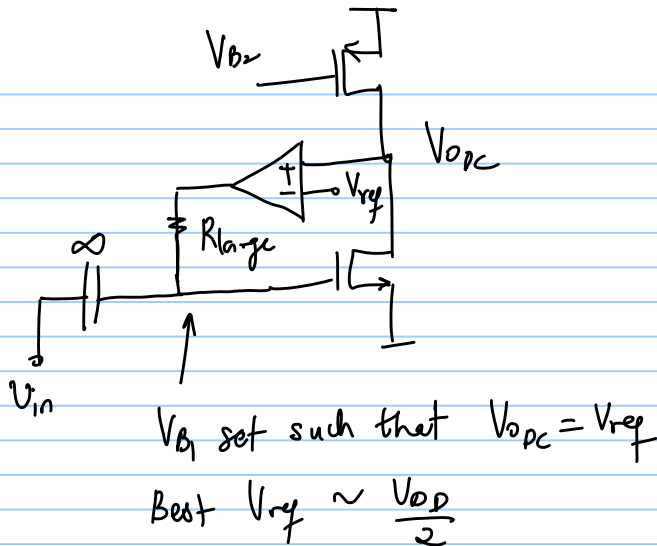 V_B2
V_ODC
+
−
V_ref
R_large
∞
V_in
V_B1 set such that V_ODC = V_ref
Best V_ref ~ V_DD/2